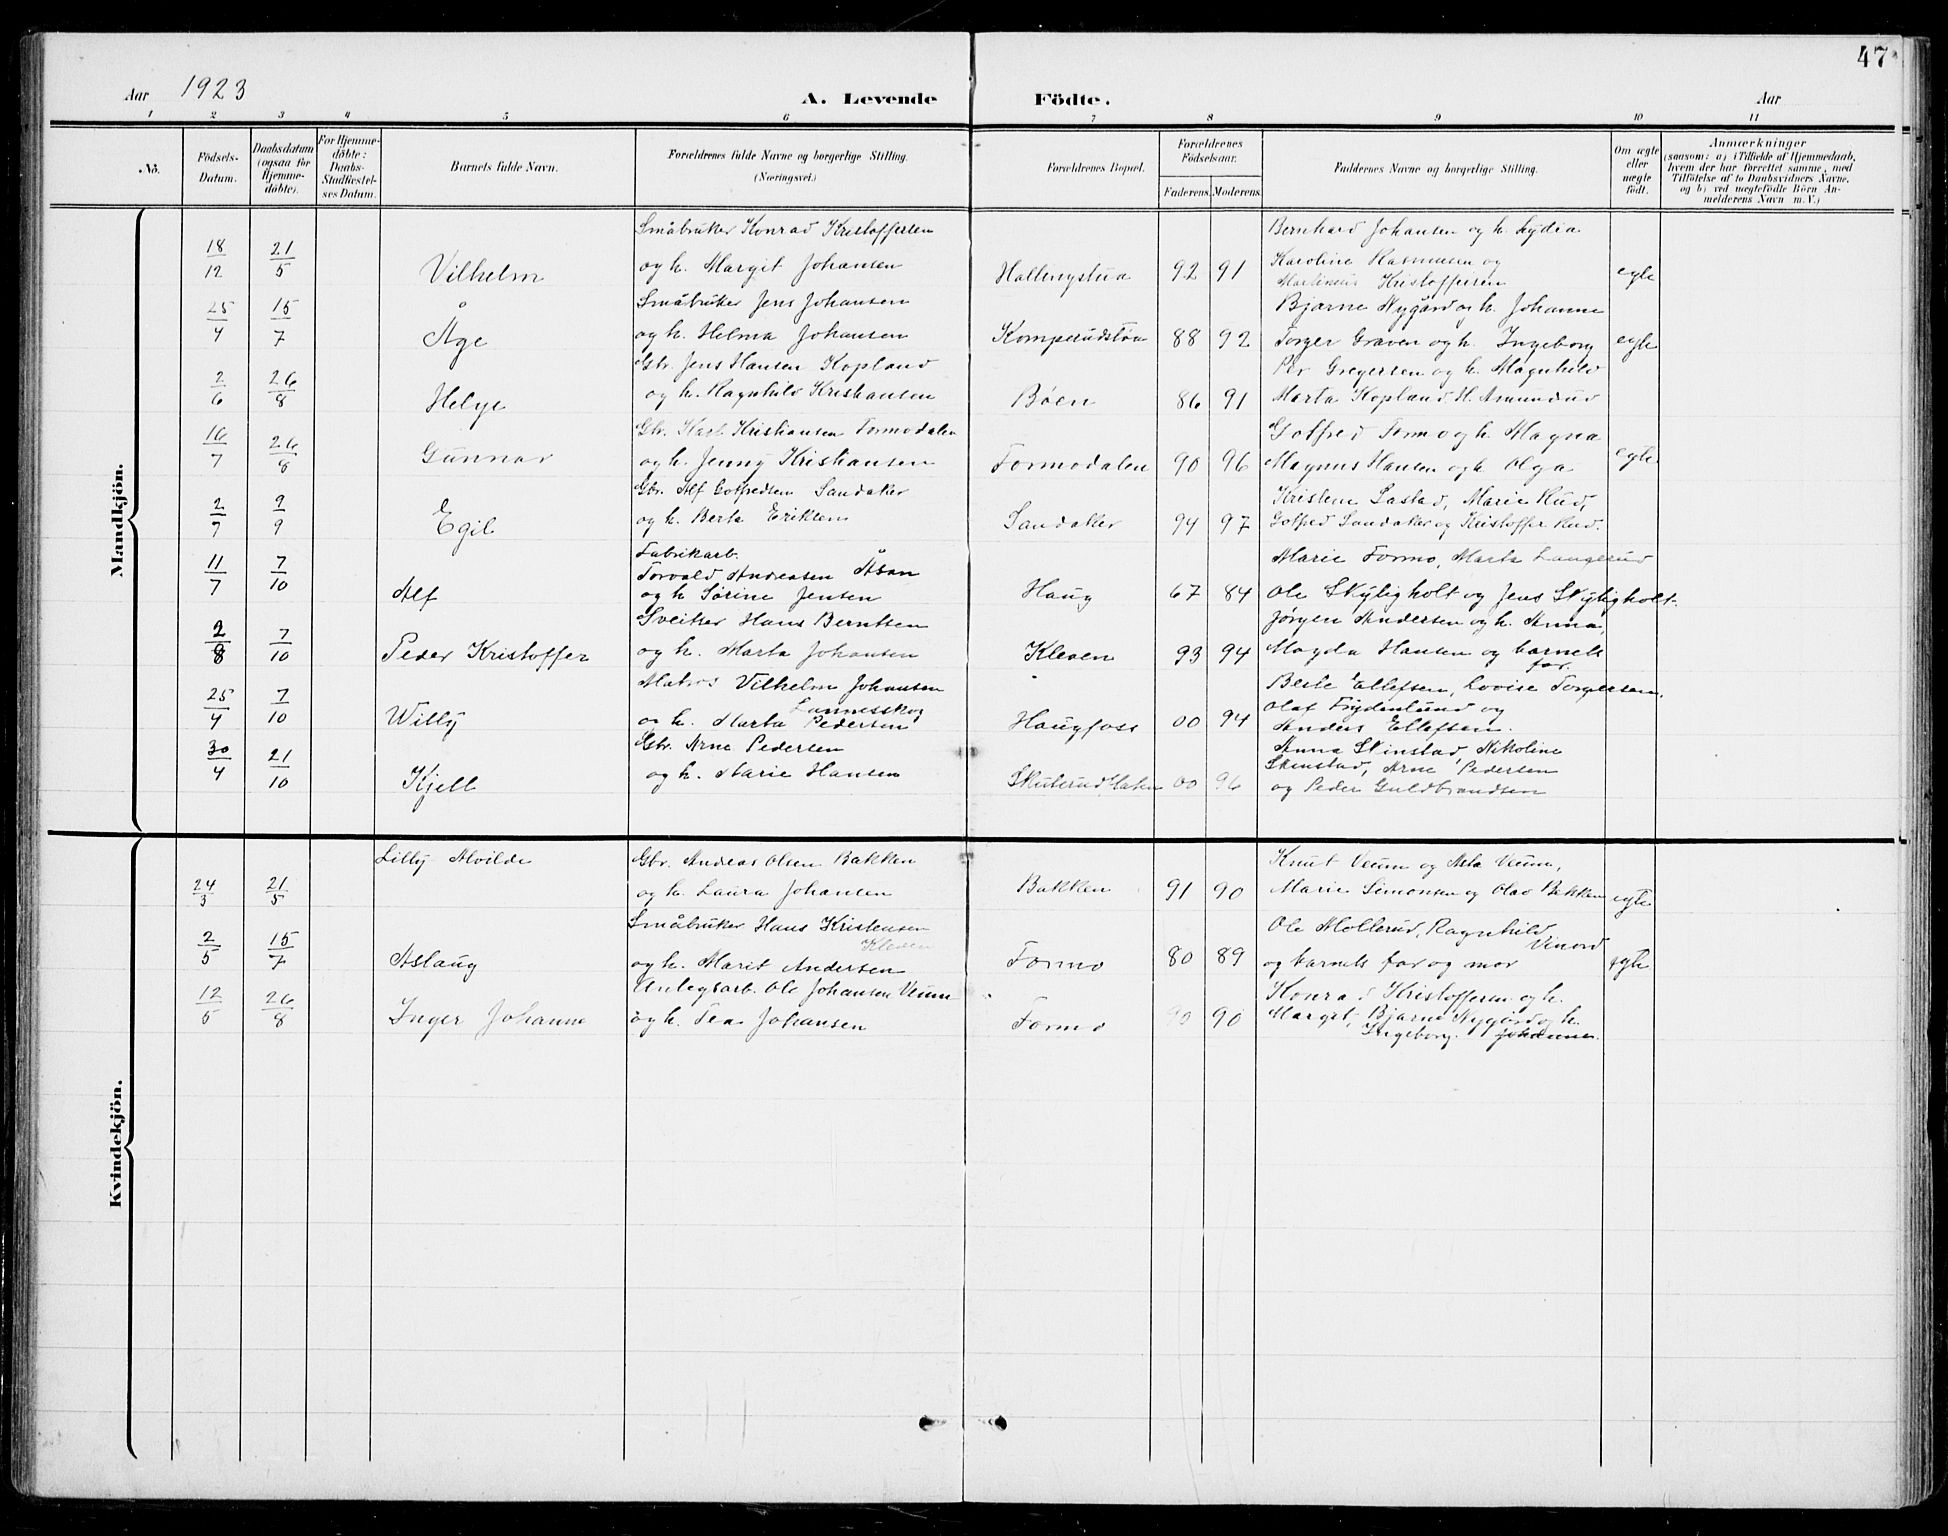 47
Aar 1923
A. Levende Födte.
Aar
1 2 3 4 5 6 7 8 9 10 11
No.
Födsels-Datum.
Daabsdatum (ogsaa for Hjemme-döbte).
For Hjemme-döbte: Daabs-Stadfestel-ses Datum.
Barnets fulde Navn.
Forældrenes fulde Navne og borgerlige Stilling.
(Næringsvei.)
Forældrenes Bopæl.
Forældrenes Födselsaar.
Faderens. Moderens.
Faddernes Navne og borgerlige Stilling.
Om ægte eller uægte födt.
Anmærkninger
(saasom: a) i Tilfælde af Hjemmedaab,
hvem der har forrettet samme, med
Tilföielse af to Daabsvidners Navne,
og b) ved uægtefödte Börn An-
melderens Navn m. V.)
Mandkjön.
Småbruker Konrad Kristoffersen Bernhard Johansen og h. Lydia
18/12 21/5 Vilhelm og h. Margit Johansen 92 91 Karoline Rasmusen og
Martinius Kristoffersen egte
25/4 15/7 Småbruker Jens Johansen Bjarne Nygård og h. Johanne
Åge og h. Helma Johansen Komperudstøa 88 92 Torger Graven og h. Ingeborg egte
2/6 26/8 Gbr. Jens Hansen Kopland Per Gregersen og h. Magnhild
Helge og h. Ragnhild Kristiansen Bøen 86 91 Marta Kopland, H. Amundrud
16/7 26/8 Gbr. Karl Kristiansen Formodalen Gotfred Formo og h. Magna
Gunnar og h. Jenny Kristiansen Formodalen 90 96 Magnus Hansen og h. Olga egte
2/7 9/9 Gbr. Alf Gotfredsen Sandaker Kristine Sastad, Marie Rud,
Egil og h. Berta Eriksen Sandaker 94 97 Gotfred Sandaker og Kristoffer Rud.
11/7 7/10 Fabrikarb. Marie Formo, Marta Langerud
Torvald Andreasen Åsan
Alf og h Sørine Jensen Haug 67 84 Ole Skyligholt og Jens Skyligholt.
2/8 7/10 Sveitser Hans Berntsen Jørgen Andersen og h. Anna,
Peder Kristoffer og h. Marta Johansen Kleven 93 94 Magda Hansen og barnets
far.
25/4 7/10 Matros Vilhelm Johansen Berte Ellefsen, Lovise Torgersen,
Lannesskog Olaf Frydenlund og
Willy og h. Marta Pedersen Haugfoss 00 94 Anders Ellefsen.
30/4 21/10 Gbr. Arne Pedersen Anna Skinstad, Nikoline
Skinstad, Arne Pedersen
Kjell og h. Marie Hansen 00 96 og Peder Guldbrandsen
Kvindekjön.
Lilly Alvilde Gbr. Andreas Olsen Bakken Knut Veum og Asta Veum,
24/3 21/5 og h. Laura Johansen Bakken 91 90 Marie Simonsen og Olav Bakken egte
Småbruker Hans Kristensen Ole Mollerud, Ragnhild
2/5 15/7 Kleven Vinord
Aslaug og h. Marit Andersen Formo 80 89 og barnets far og mor egte
12/5 26/8 Anlegsarb. Ole Johansen Veum Konrad Kristoffersen og h.
Inger Johanne og h. Tea Johansen Formo 90 Margit, Bjarne Nygård og h.
Ingeborg. Johanne.